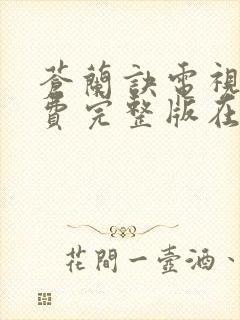 蒼蘭訣電視
費完整版在
花間一壺酒、